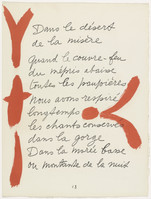 Dans le désert
de la misère
Quand le couvre-feu
du mépris abaisse
toutes les paupières
nous avons respiré
longtemps
les chants conservés
dans la gorge
Dans la marée basse
ou montante de la nuit
18